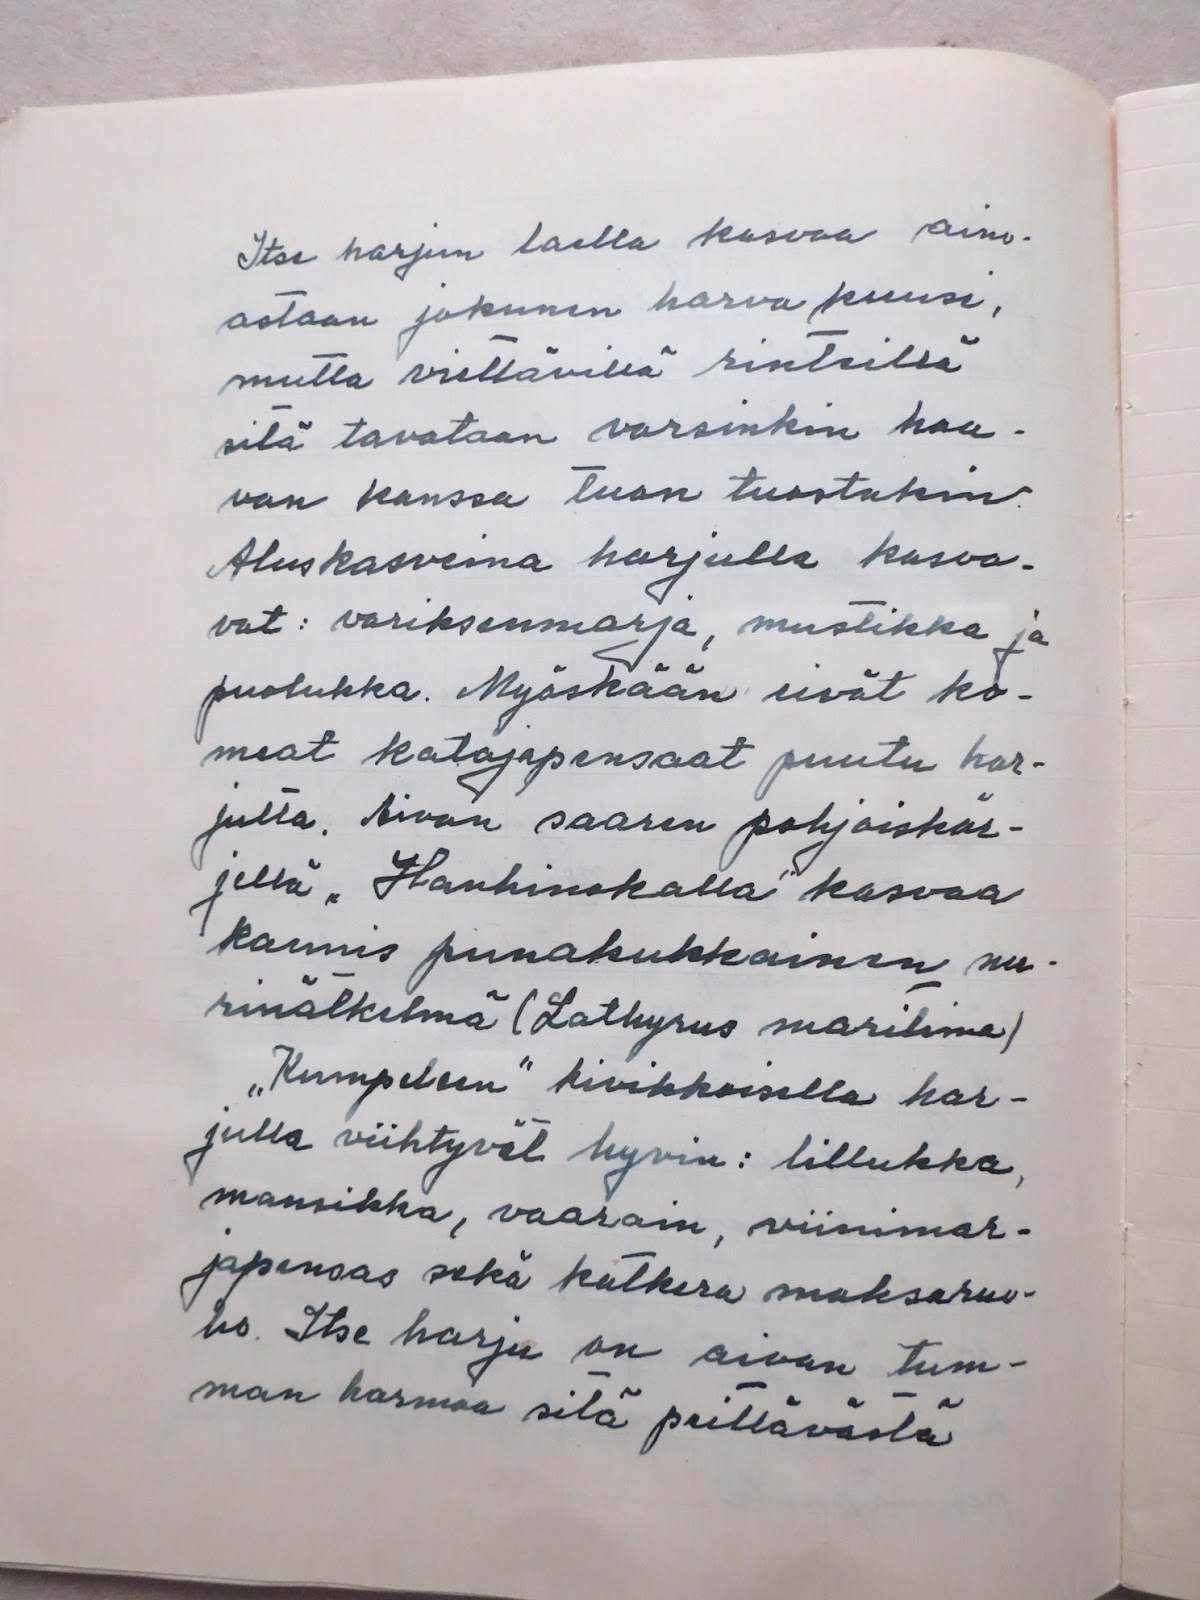 Itse harjun laella kasvaa aino-
astaan jokunen harva kuusi,
mutta viettävillä rinteillä
sitä tavataan varsinkin haa-
van kanssa tuon tuostakin.
Aluskasveina harjulla kasva-
vat: variksenmarja, mustikka ja
puolukka. Myöskään eivät ko-
meat katajapensaat puutu har-
julta. Aivan saaren pohjoiskär-
jellä „Hanhinokalla" kasvaa
kaunis punakukkainen me-
rinätkelmä (Lathyrus maritima)
„Kumpeleen" kivikkoisella har-
julla viihtyvät hyvin: lillukka,
mansikka, vaarain, viinimar-
japensas sekä katkera maksaruo-
ho. Itse harju on aivan tum-
man harmaa sitä peittävästä